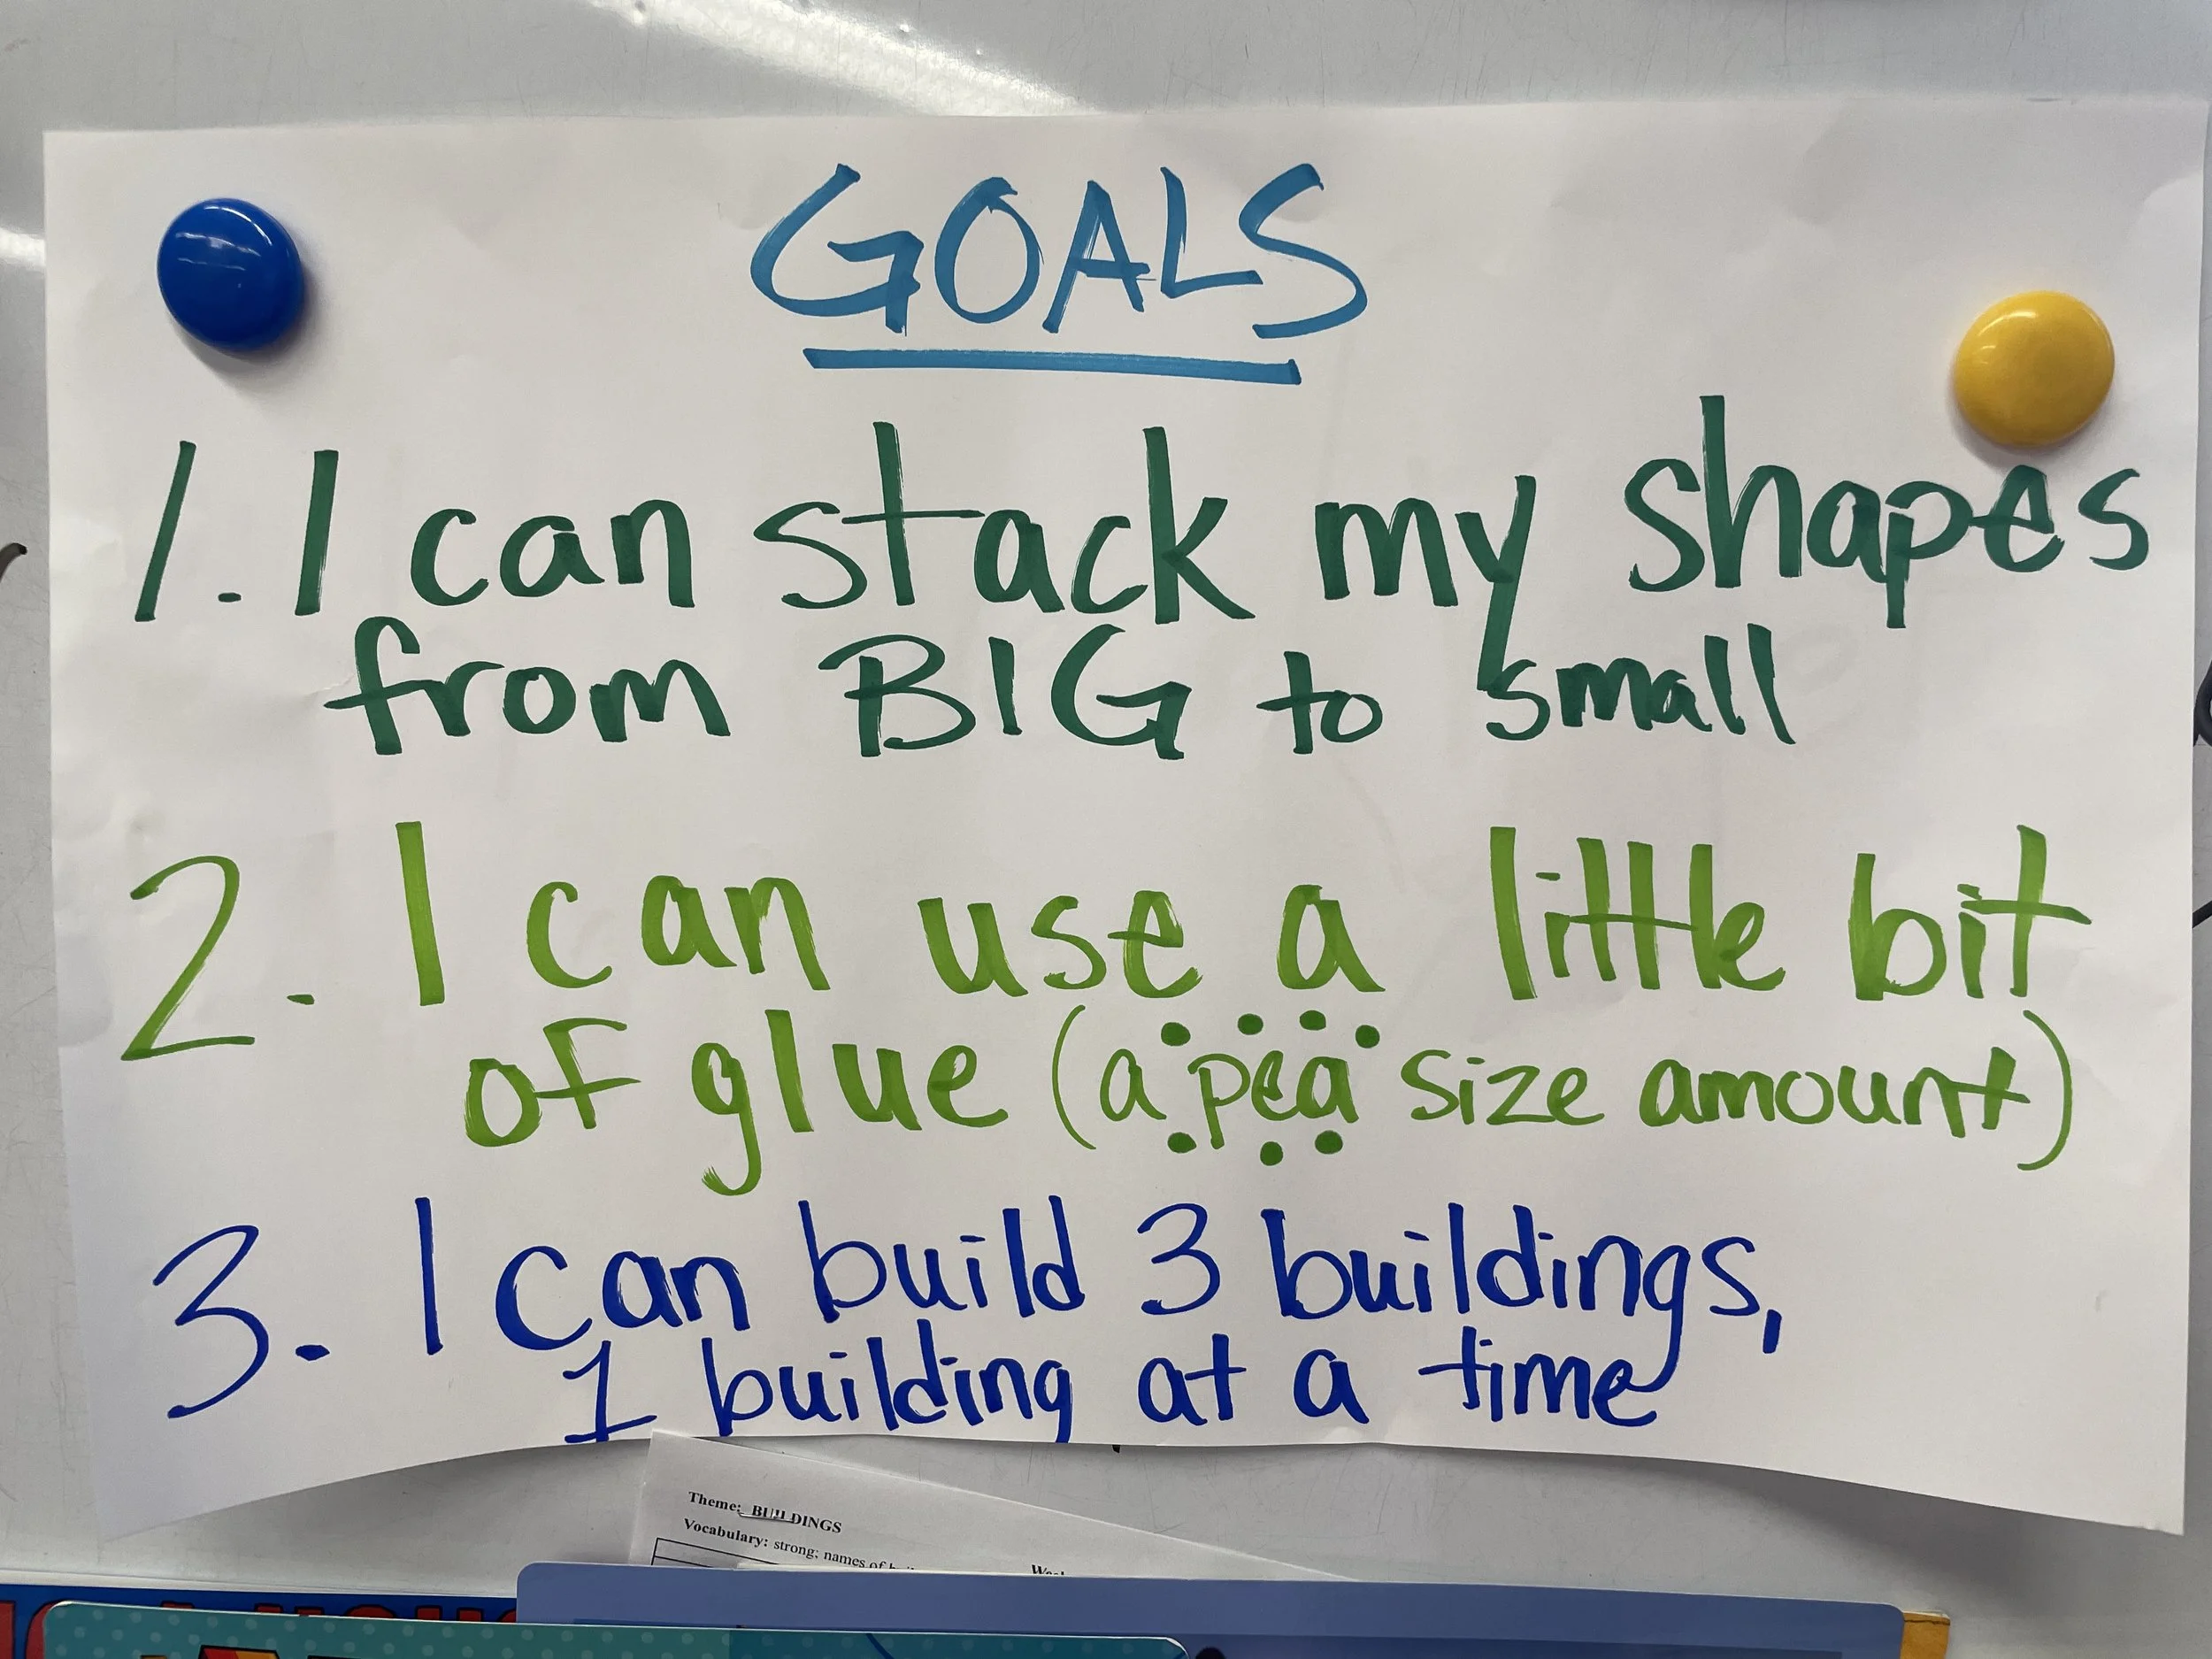 GOALS
1. I can stack my shapes
from BIG to small
2. I can use a little bit
of glue (a pea size amount)
3. I can build 3 buildings,
1 building at a time
Theme: BUILDINGS
Vocabulary: strong; names of